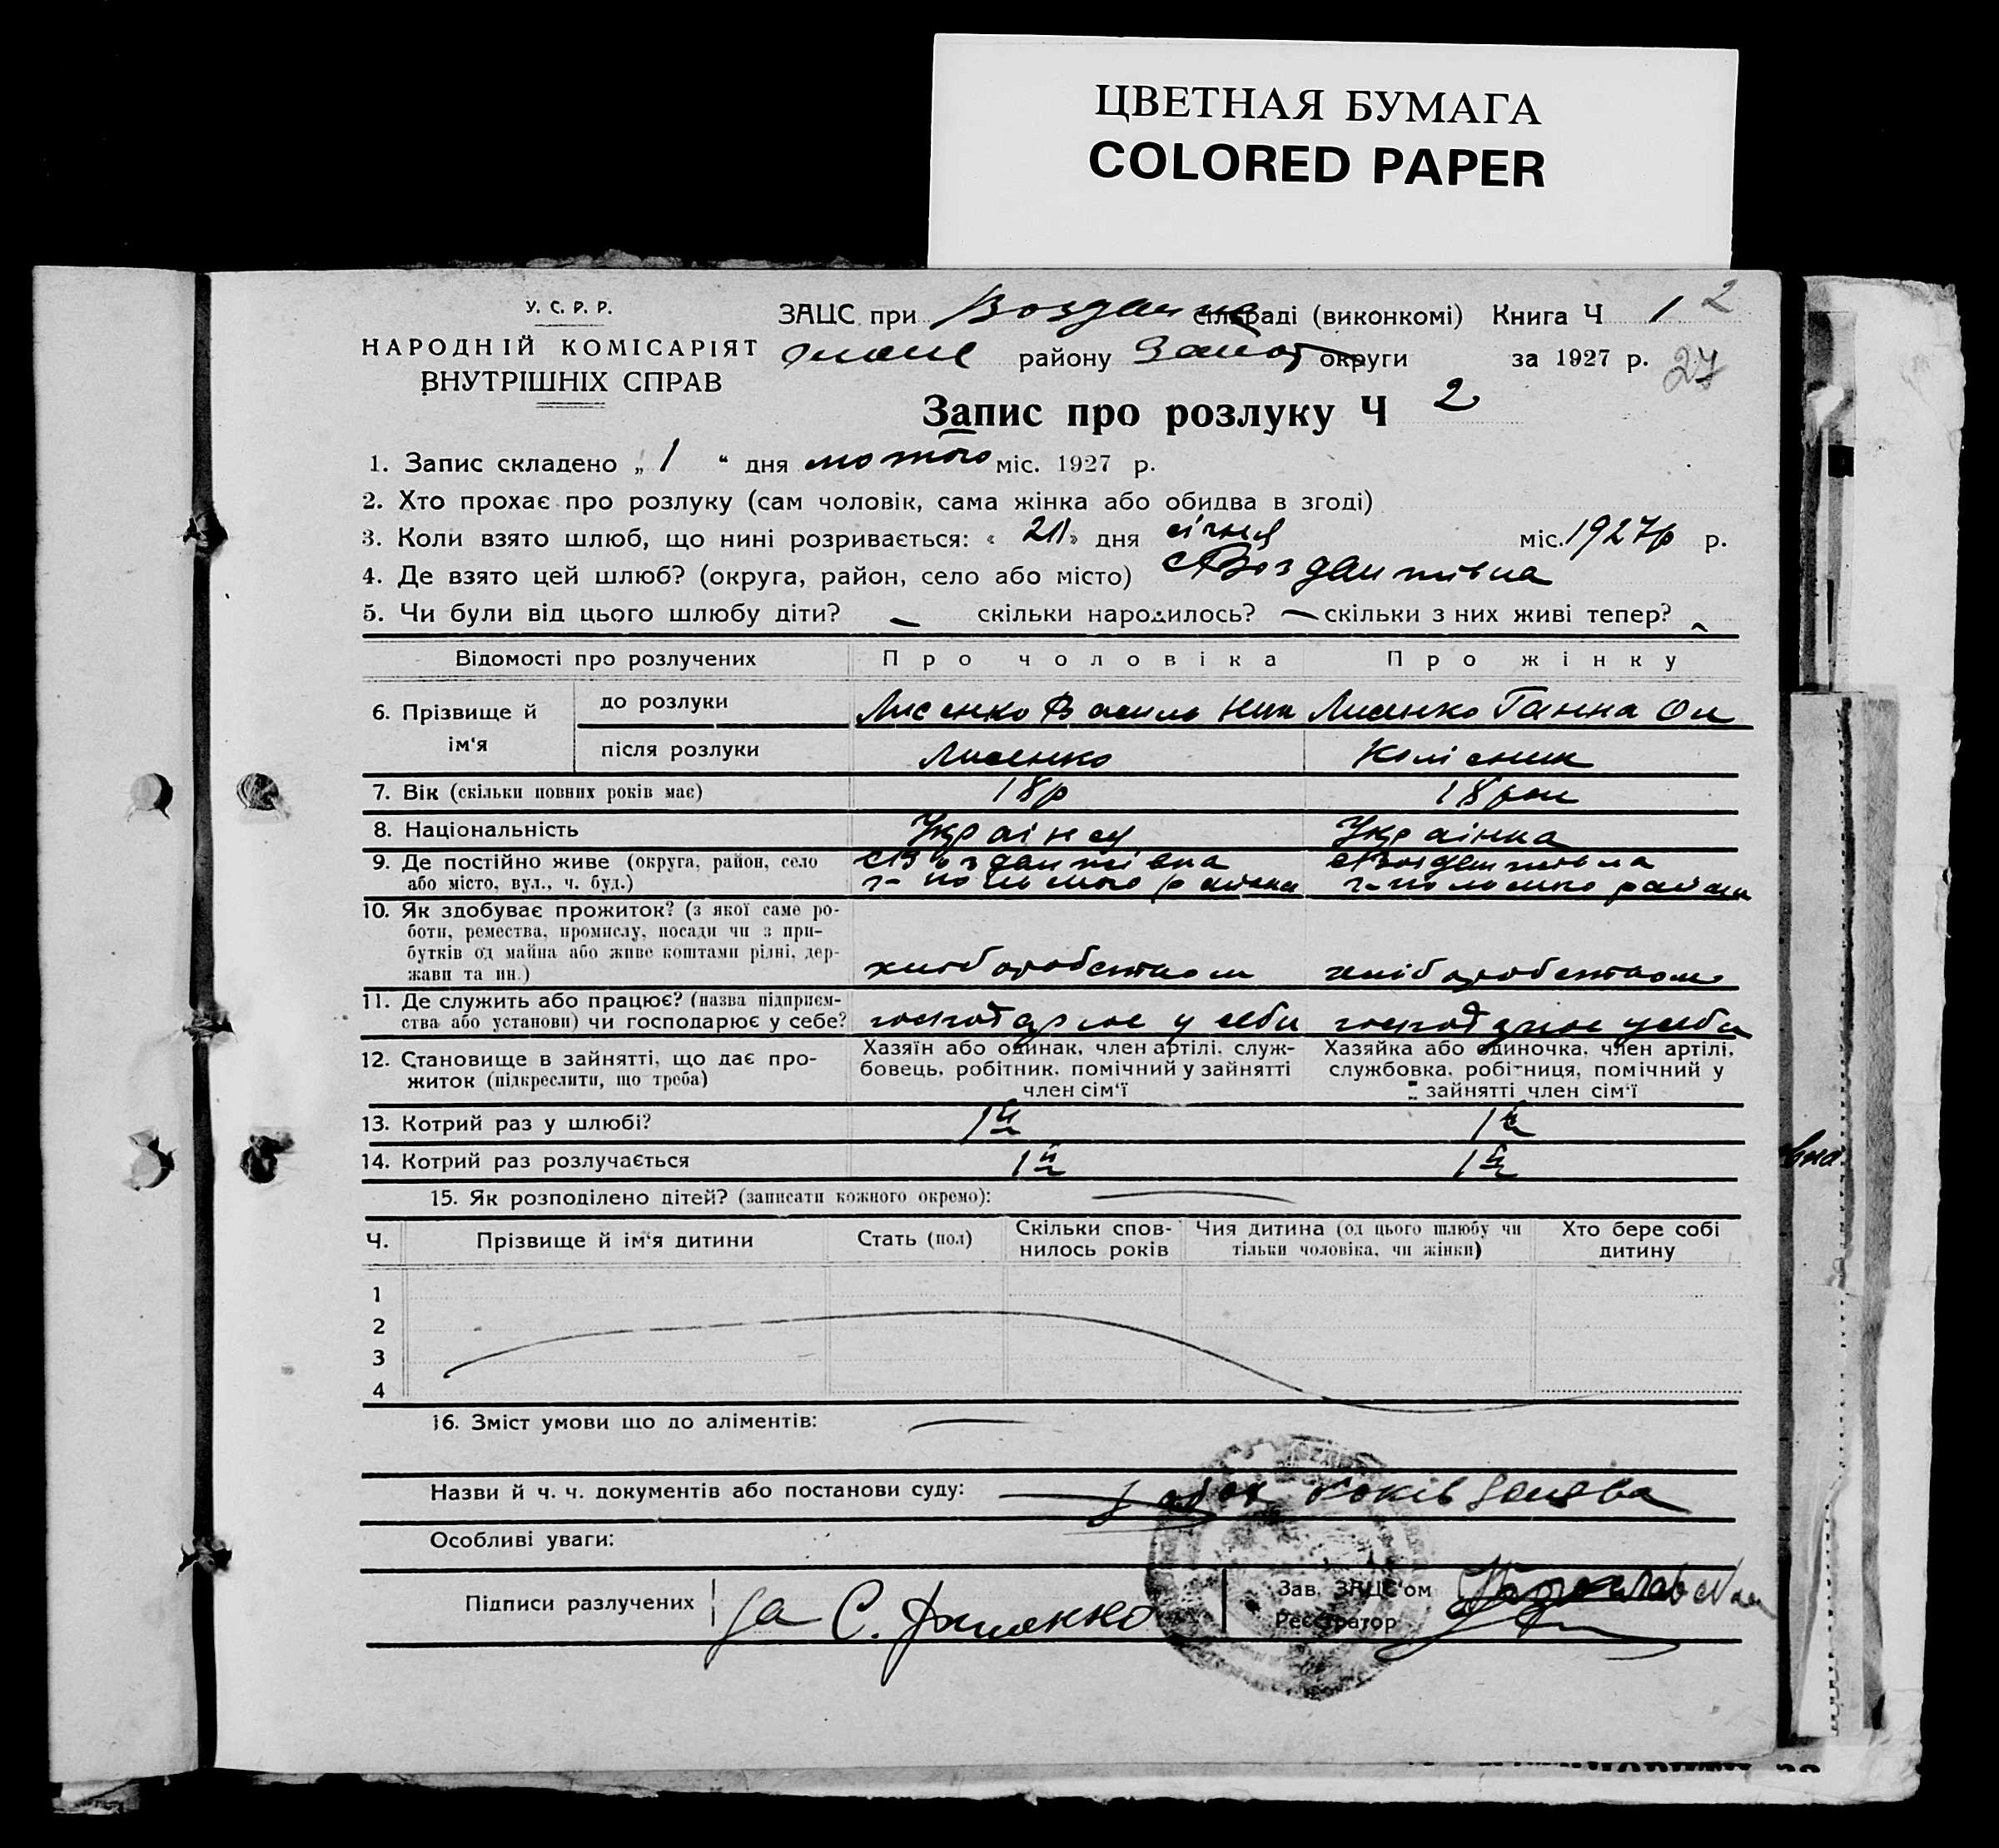 ЦВЕТНАЯ БУМАГА
COLORED PAPER
У. С. Р. Р.
НАРОДНІЙ КОМІСАРІЯТ
ВНУТРІШНІХ СПРАВ
ЗАЦС при сільраді (виконкомі) Книга Ч 1 2
району округи за 1927 р. 27
Запис про розлуку Ч 2
1. Запис складено „ 1 “ дня лютого міс. 1927 р.
2. Хто прохає про розлуку (сам чоловік, сама жінка або обидва в згоді)
3. Коли взято шлюб, що нині розривається: « 21 » дня січня міс. 1927р р.
4. Де взято цей шлюб? (округа, район, село або місто)
5. Чи були від цього шлюбу діти? — скільки народилось? — скільки з них живі тепер? -
Відомості про розлучених Про чоловіка Про жінку
6. Прізвище й ім‘я
до розлуки Лисенко Василь Лисенко Ганна
після розлуки Лисенко Колісник
7. Вік (скільки повних років має) 18р 18
8. Національність Українец Українка
9. Де постійно живе (округа, район, село
або місто, вул., ч. буд.)
10. Як здобуває прожиток? (з якої саме ро-
боти, ремества, промислу, посади чи з при-
бутків од майна або живе коштами рідні, дер-
жави та ин.) хліборобством хліборобством
11. Де служить або працює? (назва підприєм-
ства або установи) чи господарює у себе? господарює у себи господарює у себи
12. Становище в зайнятті, що дає про-
житок (підкреслити, що треба)
Хазяїн або одинак, член артілі, служ-
бовець, робітник, помічний у зайнятті
член сім‘ї
Хазяйка або одиночка, член артілі,
службовка, робітниця, помічний у
зайнятті член сім‘ї
13. Котрий раз у шлюбі? 1й 1й
14. Котрий раз розлучається 1й 1й
15. Як розподілено дітей? (записати кожного окремо): —
Ч. Прізвище й ім‘я дитини Стать (пол) Скільки спов-
нилось років Чия дитина (од цього шлюбу чи
тільки чоловіка, чи жінки) Хто бере собі
дитину
1
2
3
4
16. Зміст умови що до аліментів: —
Назви й ч. ч. документів або постанови суду:
Особливі уваги:
Підписи разлучених
Зав. ЗАЦС‘ом
Реєстратор